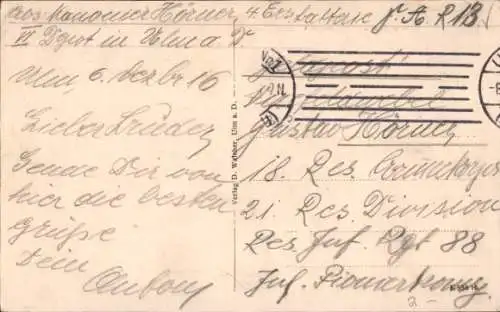 Kanonier Körner, 4. Ers. Batterie F. A. R. 13
VI Depot in Ulm a. D.
Ulm, 6. Dezbr 16
Lieber Bruder
Sende Dir von
hier die besten
Grüße
Dein
Anton
Verlag D. Walcher, Ulm a. D.
Feldpost
Gustav Körner
18. Res.
21. Res. Division
Res. Inf. Rgt 88
Inf. Pionier
2-